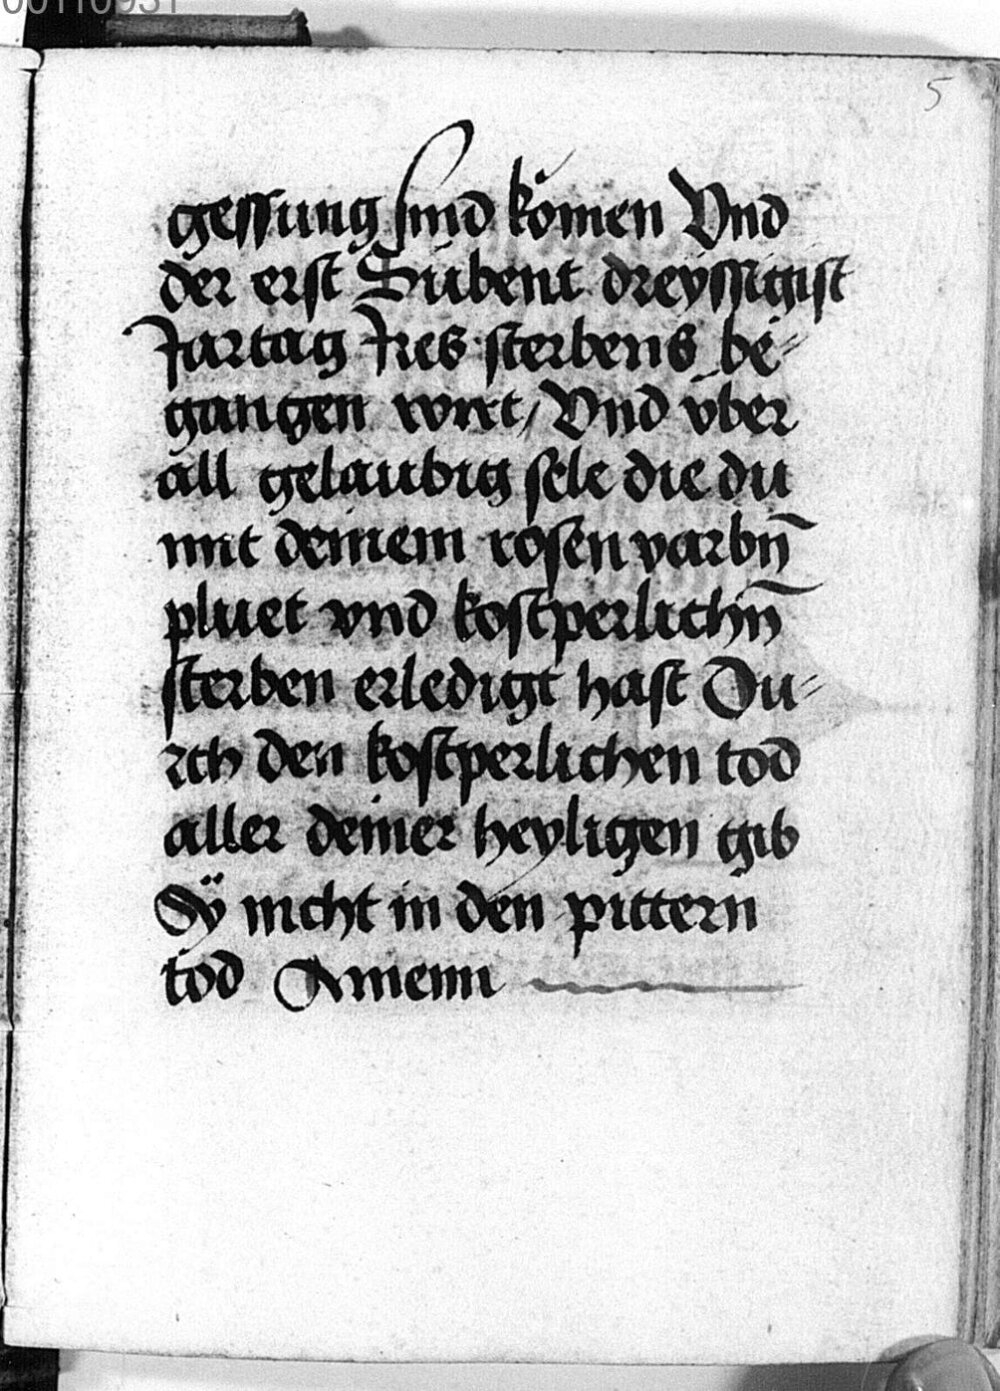 00110931
5
gessung sind komen Vnd
der erst Sübent dreyssigist
Jartag Jres sterbens be⸗
gangen wirt / Vnd vber
all gelaubig sele die du
mit deinem rosen varbn̄
pluet vnd kostperlichn̄
sterben erledigt hast Du⸗
rch den kostperlichen tod
aller deiner heyligen gib
Sÿ nicht in den pittern
tod Amenn